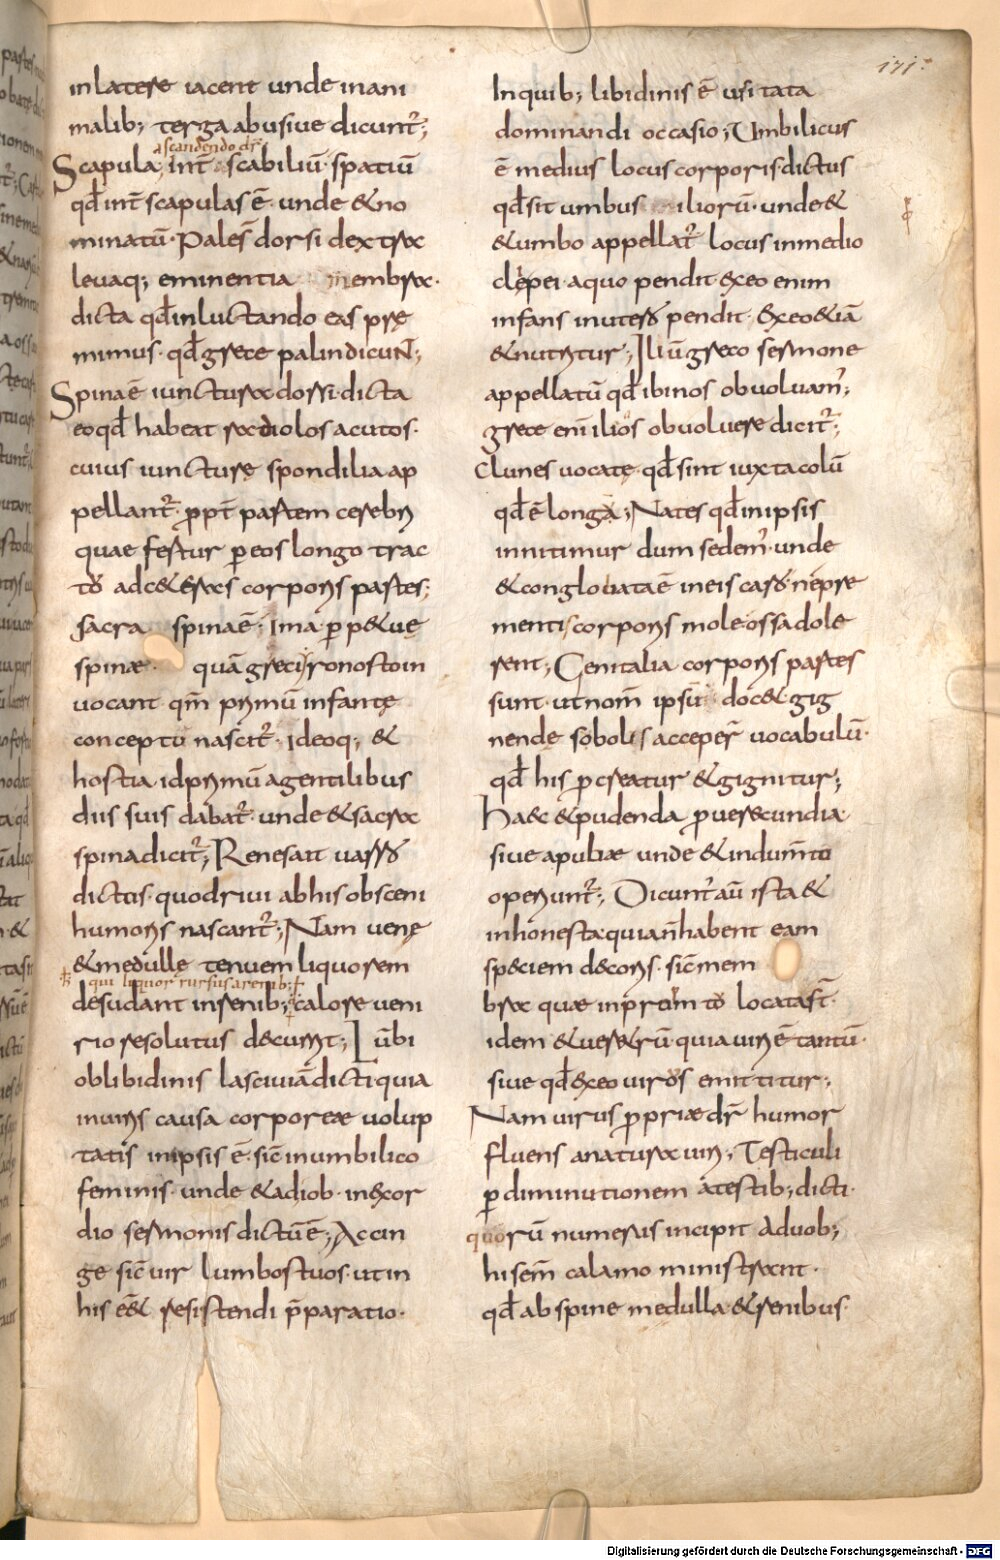 171
in latere iacent unde in ani
malib; terga abusiue dicunt̃;
ascandendo dr̃
Scapula; Int̃ scabiliū spatiū
qđ int̃ scapulas ē· unde & no
minatū· Pales̃ dorsi dextra
leuaq; eminentia membra·
dicta qđ in luctando eas prę
mimus· qđ grece palin dicunt;
Spina ē iunctura dossi· dicta
eo qđ habeat radiolos acutos·
cuius iuncturę spondilia ap
pellant̃· ꝓpt̃ partem cerebri
quae fertur ꝑ eos longo trac
tu ad c&eras corporis partes;
sacra spina ē· Ima ꝑp&uę
spinæ· quam greci ronostoin
uocant· qm̃ primū infante
conceptu nascit̃· ideoq; &
hostia id primū a gentilibus
diis suis dabat̃· unde & sacra
spina dicit̃; Renes ait uarro
dictus· quod riui ab his obsceni
humoris nascant̃; Nam uenę
& medullę tenuem liquorem
qui liquor rursus a renib;
desudant in renib; calore ueni
rio resolutus decurrit; Lūbi
ob libidinis lasciuiā dicti quia
in uiris causa corporeæ uolup
tatis in ipsis ē· sic̃ in umbilico
feminis· unde & ad iob· in exor
dio sermonis dictū ē; Accin
ge sic̃ uir lumbos tuos· ut in
his ēe& resistendi p̄paratio·
In quib; libidinis ē usitata
dominandi occasio; Umbilicus
ē medius locus corporis· dictus
qđ sit umbus iliorū· unde &
& umbo appellat̃ locus in medio
clepei· a quo pendit· & ex eo enim
infans in utero pendit· Ex eo & iā
& nutritur; Iliū greco sermone
appellatū qđ ibi nos obuoluam̃;
grece em̃ ilios obuoluere dicit̃;
Clunes uocatę· qđ sint iuxta colū
qđ ē longa; Nates qđ in ipsis
innitimur dum sedem̃· unde
& conglobata ē in eis caro· ne pre
mentis corporis mole ossa dole
rent; Genitalia corporis partes
sunt· ut nom̃ ipsū doc&· gig
nende sobolis acceper̃ uocabulū·
qđ his ꝓcreatur & gignitur;
Haec & pudenda ꝓ uerecundia·
siue a pubæ unde & indum̃to
operiunt̃; Dicunt̃ aū ista &
inhonesta· quia ñ habent eam
speciem decoris· sic̃ mem
bra quæ in prom̃tu locata st̃·
idem & ueretrū quia uiri ē tantū·
siue qđ ex eo uirus emittitur;
Nam uirus ꝓpriæ dr̃ humor
fluens a natura uiri; Testiculi
ꝑ diminutionem a testib; dicti·
quorū numerus incipit a duob;
hi sem̃ calamo ministrant·
qđ ab spine medulla & renibus·
Digitalisierung gefördert durch die Deutsche Forschungsgemeinschaft - DFG